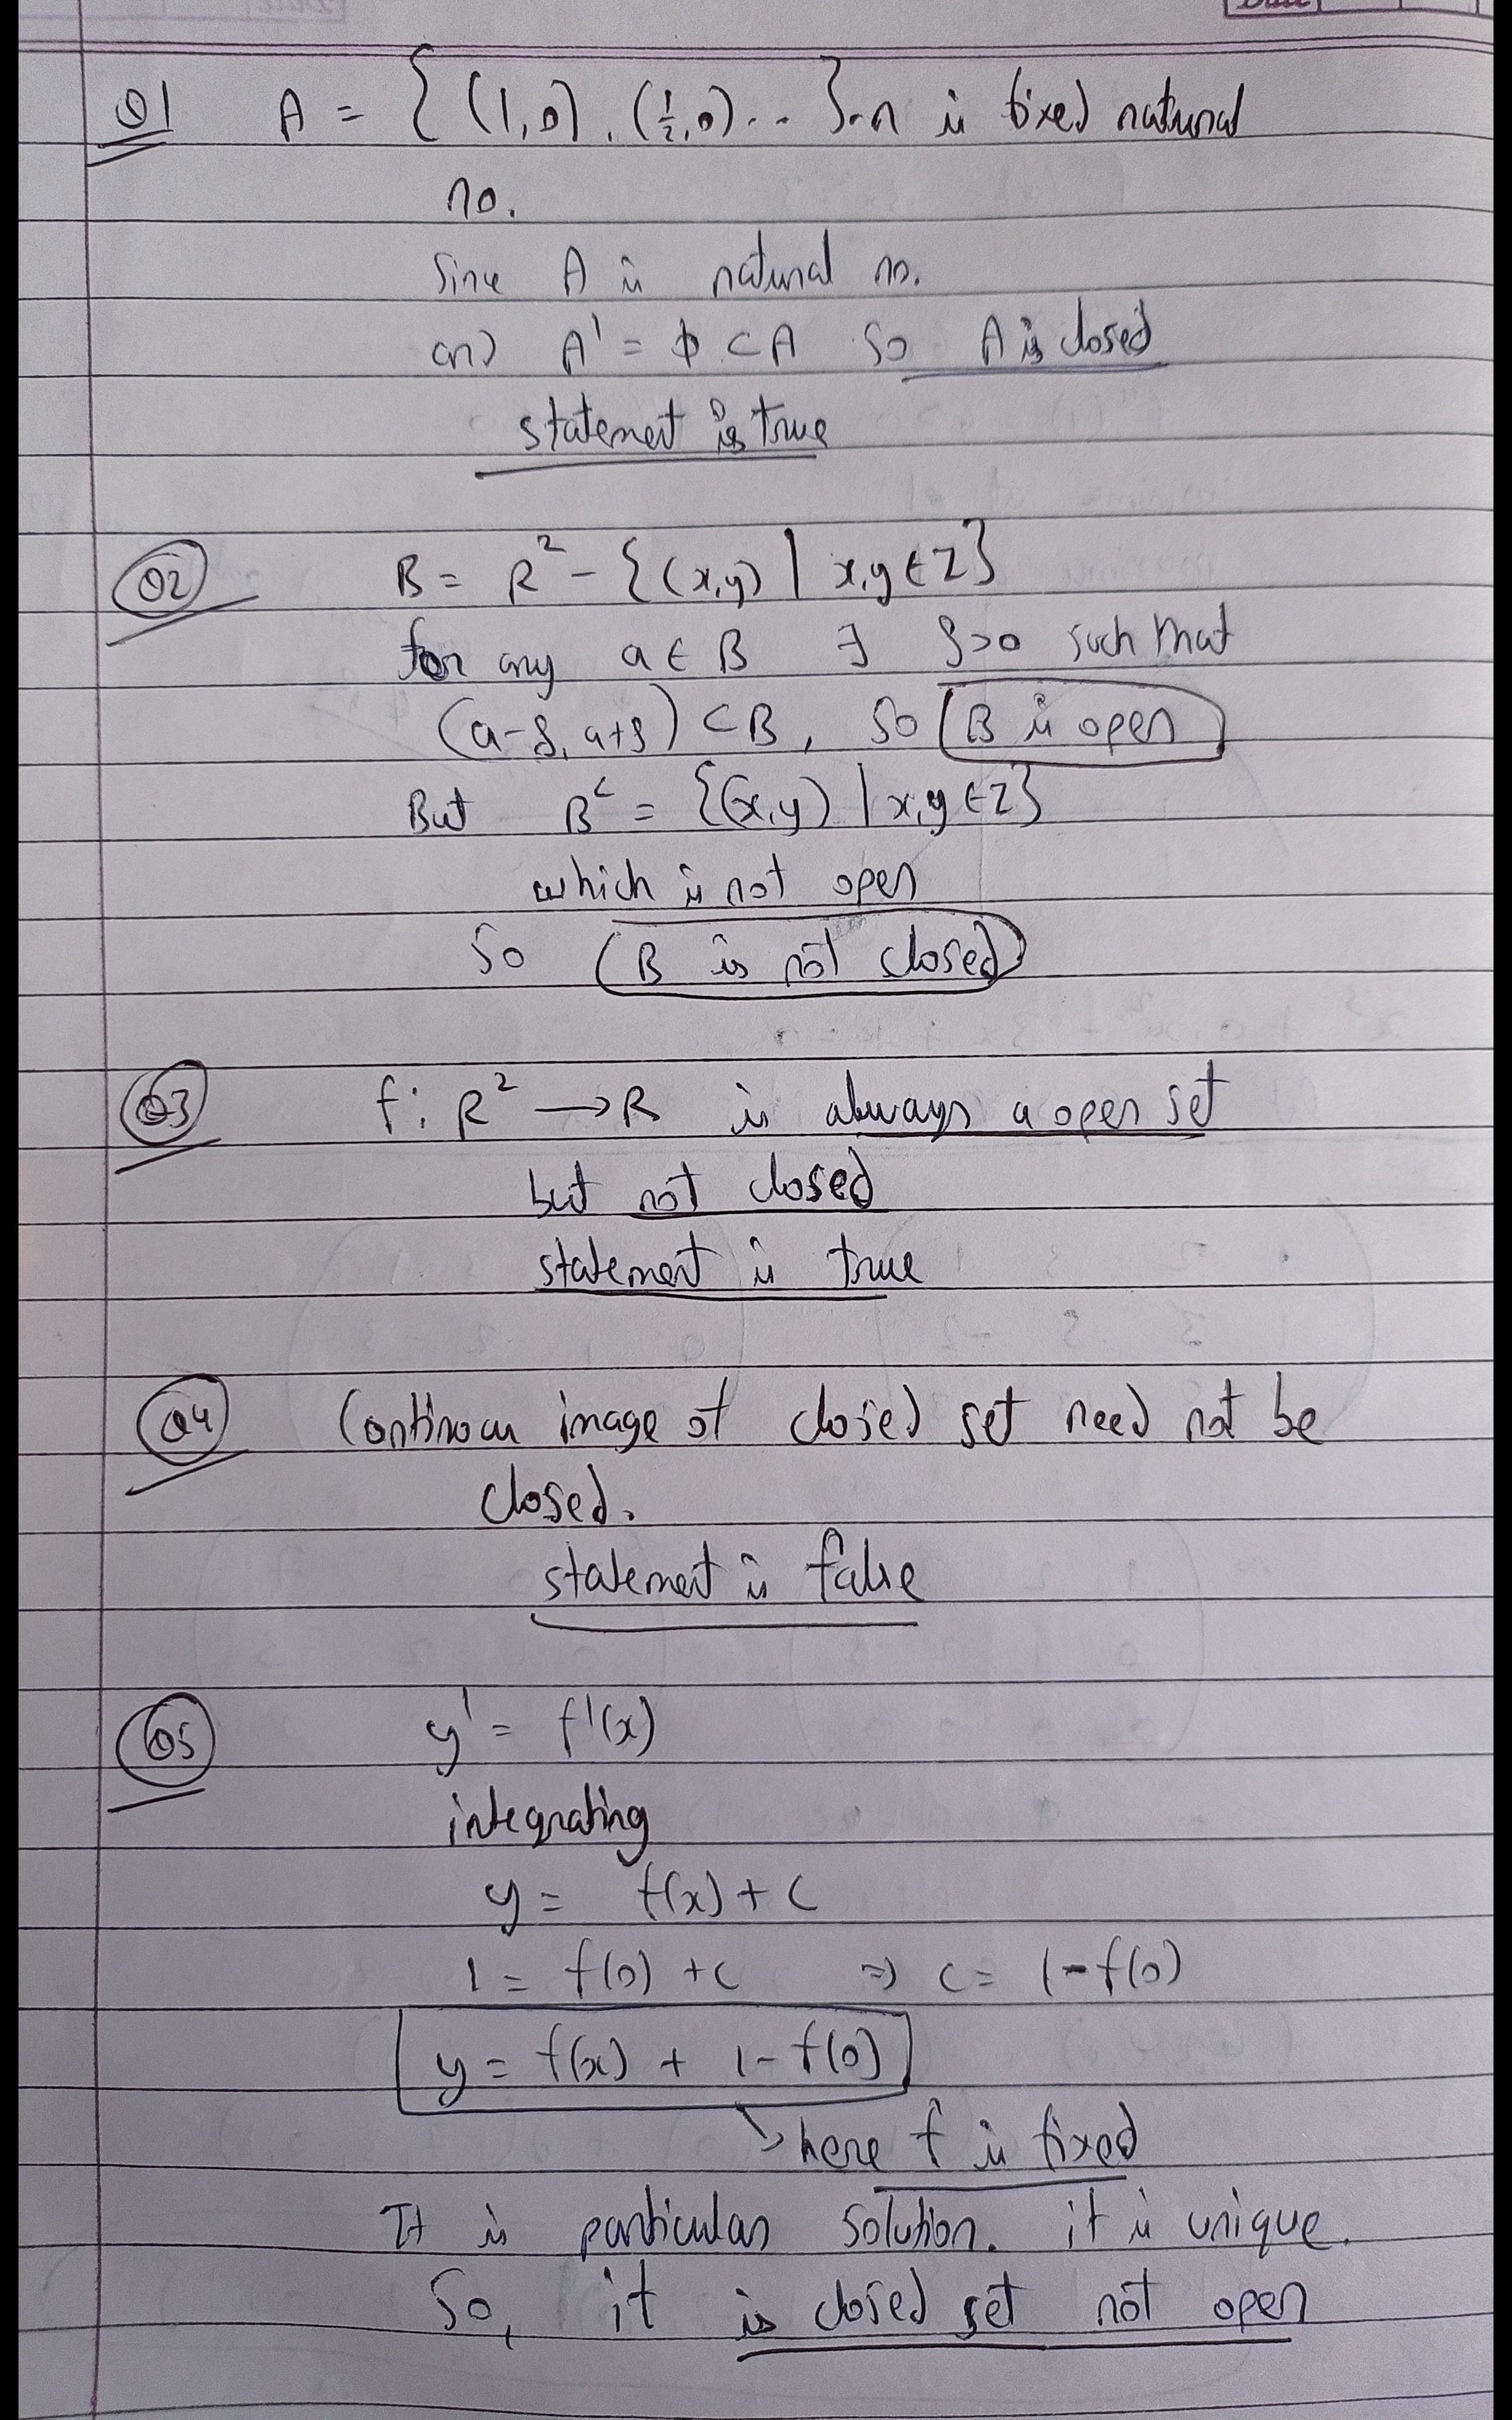 Date
Q1 A = { (1,0), (1/2,0)... }. n is fixed natural
no.
Sine A is natural no.
and A' = ϕ ⊂ A So A is closed
statement is true
Q2 B = R² - {(x,y) | x,y ∈ Z}
for any a ∈ B ∃ δ>0 such that
(a-δ, a+δ) ⊂ B, So B is open
But B^c = {(x,y) | x,y ∈ Z}
which is not open
So B is not closed
Q3 f: R² → R is always a open set
but not closed
statement is true
Q4 Continous image of closed set need not be
closed.
statement is false
Q5 y' = f'(x)
integrating
y = f(x) + c
1 = f(0) + c ⇒ c = 1 - f(0)
y = f(x) + 1 - f(0)
↘ here f is fixed
It is particular solution. it is unique.
So, it is closed set not open